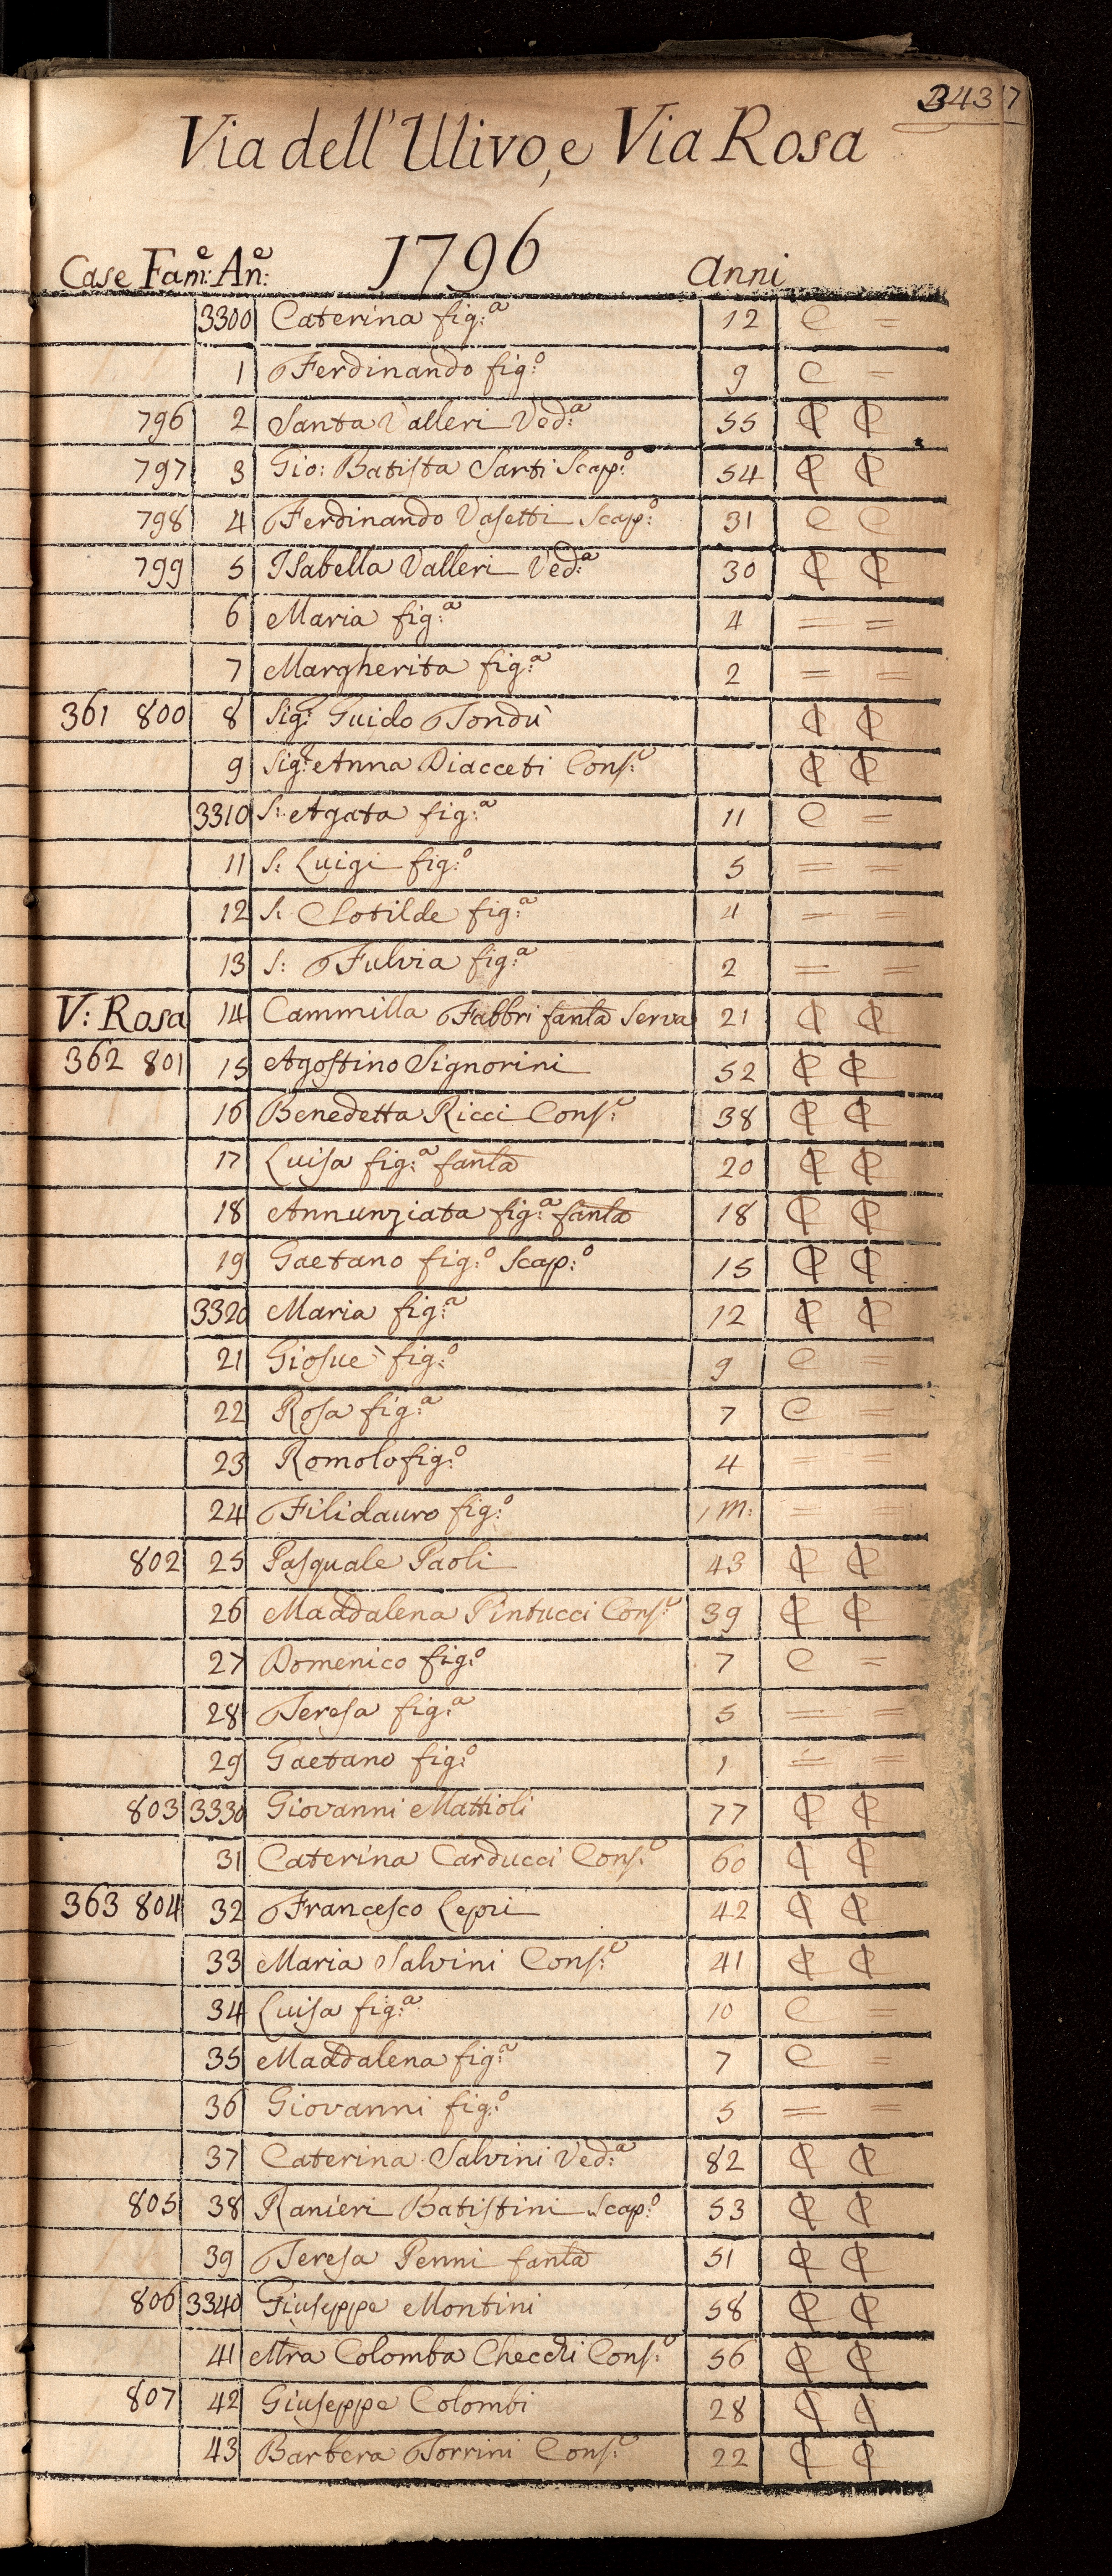 3437
Via dell'Ulivo, e Via Rosa
1796
Case Fam:e An:e Anni
3300 Caterina fig:a 12 C =
1 Ferdinando fig:o 9 C =
796 2 Santa Valleri Ved:a 55 ₵ ₵
797 3 Gio: Batista Sarti Scap:o 54 ₵ ₵
798 4 Ferdinando Vasetti Scap:o 31 C C
799 5 Isabella Valleri Ved:a 30 ₵ ₵
6 Maria fig:a 4 = =
7 Margherita fig:a 2 = =
361 800 8 Sig:r Guido Tondù ₵ ₵
9 Sig:ra Anna Diacceti Cons:e ₵ ₵
3310 S: Agata fig:a 11 C =
11 S: Luigi fig:o 5 = =
12 S: Clotilde fig:a 4 = =
13 S: Fulvia fig:a 2 = =
V: Rosa 14 Cammilla Fabbri fanla Serva 21 ₵ ₵
362 801 15 Agostino Signorini 52 ₵ ₵
16 Benedetta Ricci Cons:e 38 ₵ ₵
17 Luisa fig:a fanla 20 ₵ ₵
18 Annunziata fig:a fanla 18 ₵ ₵
19 Gaetano fig:o Scap:o 15 ₵ ₵
3320 Maria fig:a 12 ₵ ₵
21 Giosuè fig:o 9 C =
22 Rosa fig:a 7 C =
23 Romolo fig:o 4 = =
24 Filidauro fig:o 1 M: = =
802 25 Pasquale Paoli 43 ₵ ₵
26 Maddalena Pintucci Cons:e 39 ₵ ₵
27 Domenico fig:o 7 C =
28 Teresa fig:a 5 = =
29 Gaetano fig:o 1 = =
803 3330 Giovanni Mattioli 77 ₵ ₵
31 Caterina Carducci Cons:e 60 ₵ ₵
363 804 32 Francesco Lepri 42 ₵ ₵
33 Maria Salvini Cons:e 41 ₵ ₵
34 Luisa fig:a 10 C =
35 Maddalena fig:a 7 C =
36 Giovanni fig:o 5 = =
37 Caterina Salvini Ved:a 82 ₵ ₵
805 38 Ranieri Batistini Scap:o 53 ₵ ₵
39 Teresa Penni fanla 51 ₵ ₵
806 3340 Giuseppe Montini 58 ₵ ₵
41 Mra Colomba Checchi Cons:e 56 ₵ ₵
807 42 Giuseppe Colombi 28 ₵ ₵
43 Barbera Torrini Cons:e 22 ₵ ₵